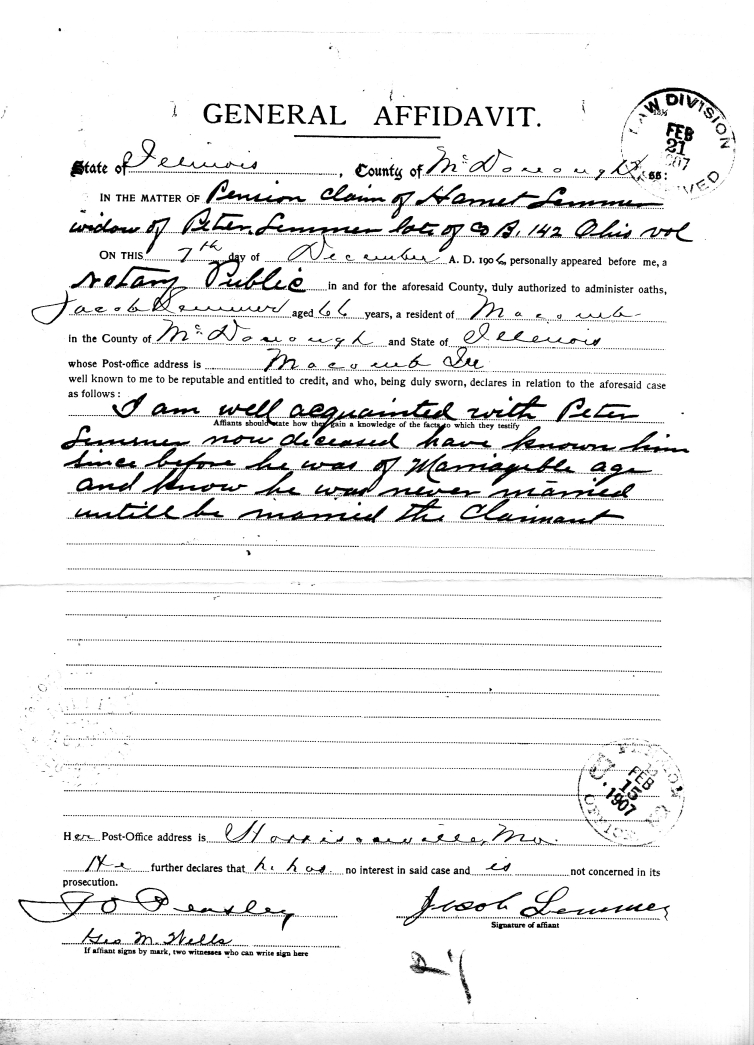 GENERAL AFFIDAVIT.
LAW DIVISION
FEB
21
1907
RECEIVED
State of Illinois, County of McDonough ss:
IN THE MATTER OF Pension claim of Harriet Lemmer
widow of Peter Lemmer late of Co B. 142 Ohio vol
ON THIS 7th day of December A. D. 1906, personally appeared before me, a
Notary Public in and for the aforesaid County, duly authorized to administer oaths,
Jacob Lemmer aged 66 years, a resident of Macomb
in the County of McDonough and State of Illinois
whose Post-office address is Macomb Ill
well known to me to be reputable and entitled to credit, and who, being duly sworn, declares in relation to the aforesaid case
as follows:
I am well acquainted with Peter
Affiants should state how they gain a knowledge of the facts to which they testify
Lemmer now deceased have known him
since before he was of Marriageble age
and know he was never married
untill he married the Claimant
FEB
15
1907
Her Post-Office address is Harrisonville, Mo.
He further declares that he has no interest in said case and is not concerned in its
prosecution.
J O Peasley
Jacob Lemmer
Signature of affiant
Geo M. Wells
If affiant signs by mark, two witnesses who can write sign here